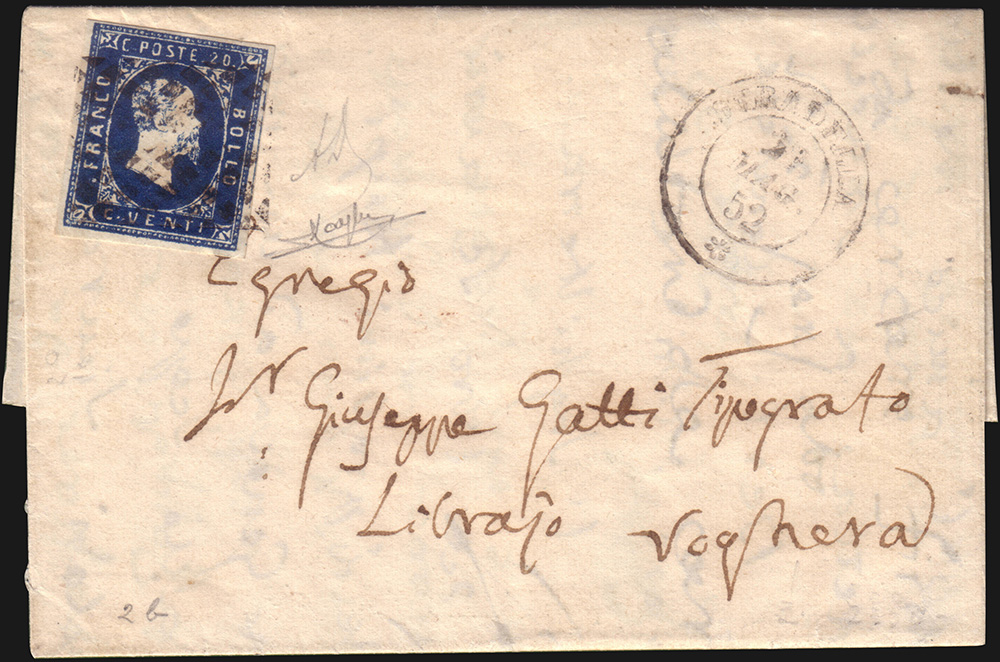 C. POSTE. 20.
FRANCO
BOLLO
C. VENTI
STRADELLA
MAG
52
Egregio
Sr Giuseppe Gatti Tipografo
Librajo Voghera
2 b